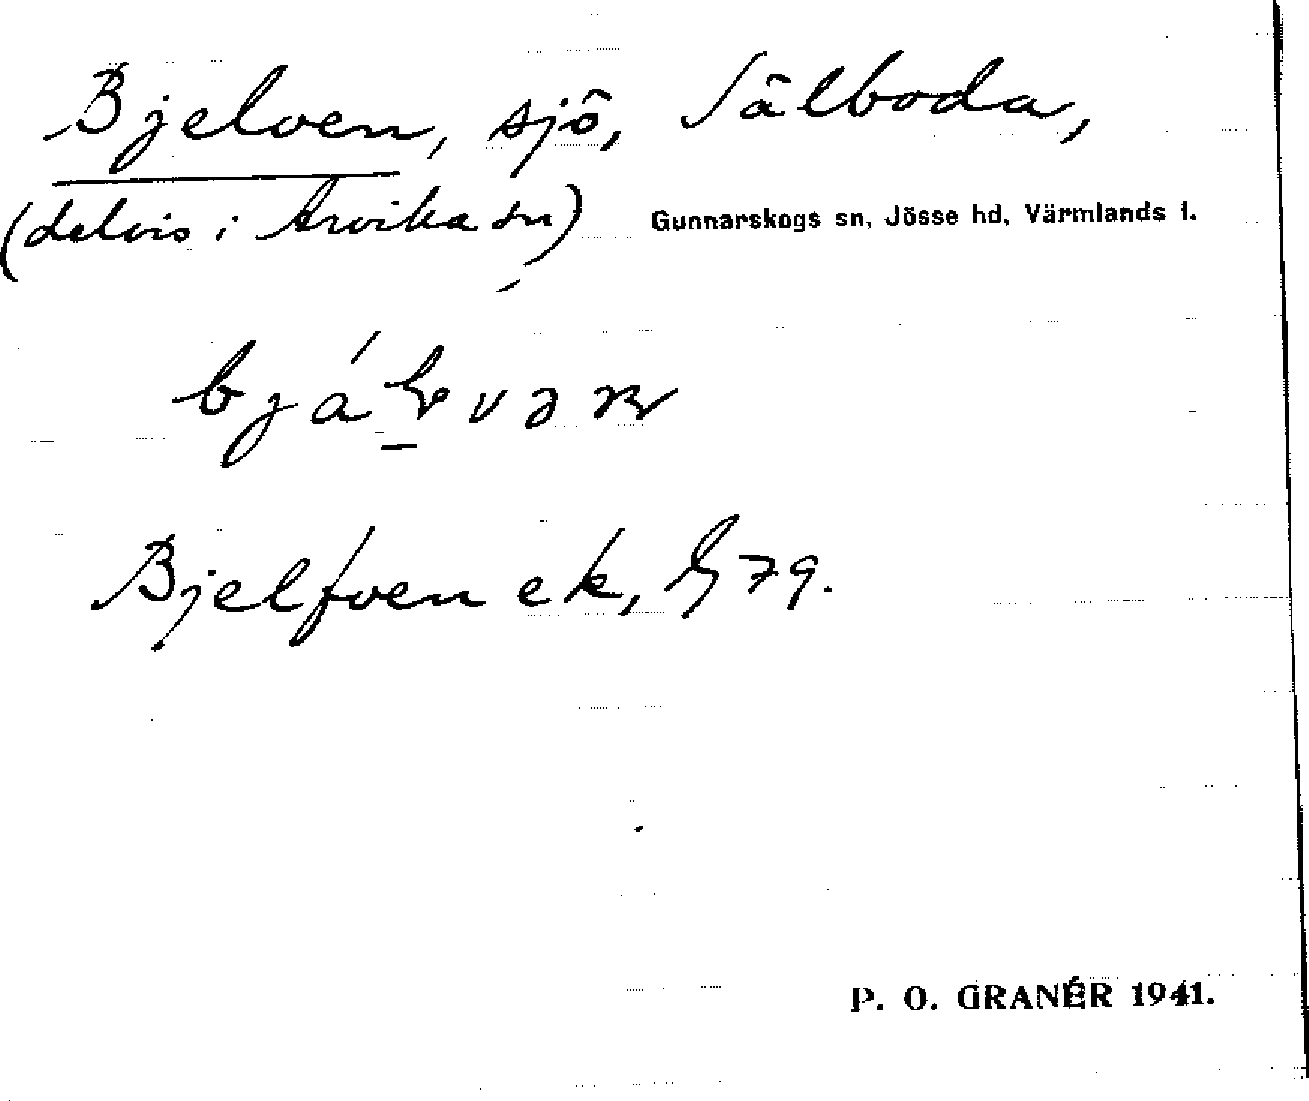 Bjelven, sjö, Sälboda,
(delvis i Arvika sn) Gunnarskogs sn, Jösse hd, Värmlands l.
Bjelfven ek, 79.
P. O. GRANÉR 1941.